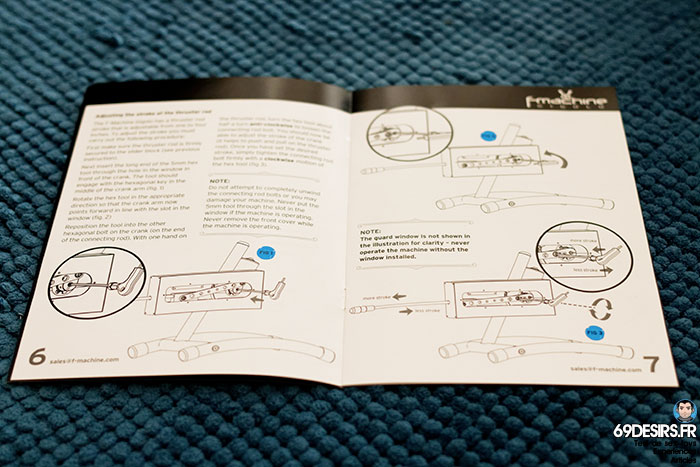 Adjusting the stroke of the thruster rod
The F-Machine Gigolo has a thruster rod
stroke that is adjustable from one to four
inches. To adjust the stroke you must
carry out the following procedure:
First make sure the thruster rod is firmly
secured to the slider block (see previous
instruction).
Next insert the long end of the 5mm hex
tool through the hole in the window in
front of the crank. The tool should
engage with the hexagonal key in the
middle of the crank arm (fig. 1)
Rotate the hex tool in the appropriate
direction so that the crank arm now
points forward in line with the slot in the
window (fig. 2)
Reposition the tool into the other
hexagonal bolt on the crank (on the end
of the connecting rod). With one hand on
the thruster rod, turn the hex tool about
half a turn anti-clockwise to loosen the
connecting rod bolt. You should now be
able to adjust the stroke of the crank
(it helps to push and pull on the thruster
rod). Once you have set the desired
stroke, simply tighten the connecting rod
bolt firmly with a clockwise motion of
the hex tool (fig. 3).
NOTE:
Do not attempt to completely unwind
the connecting rod bolts or you may
damage your machine. Never put the
5mm tool through the slot in the
window if the machine is operating.
Never remove the front cover while
the machine is operating.
FIG 1
6
sales@f-machine.com
f-machine
GIGOLO
NOTE:
The guard window is not shown in
the illustration for clarity - never
operate the machine without the
window installed.
more stroke
less stroke
more stroke
less stroke
FIG 3
sales@f-machine.com
7
69DESIRS.FR